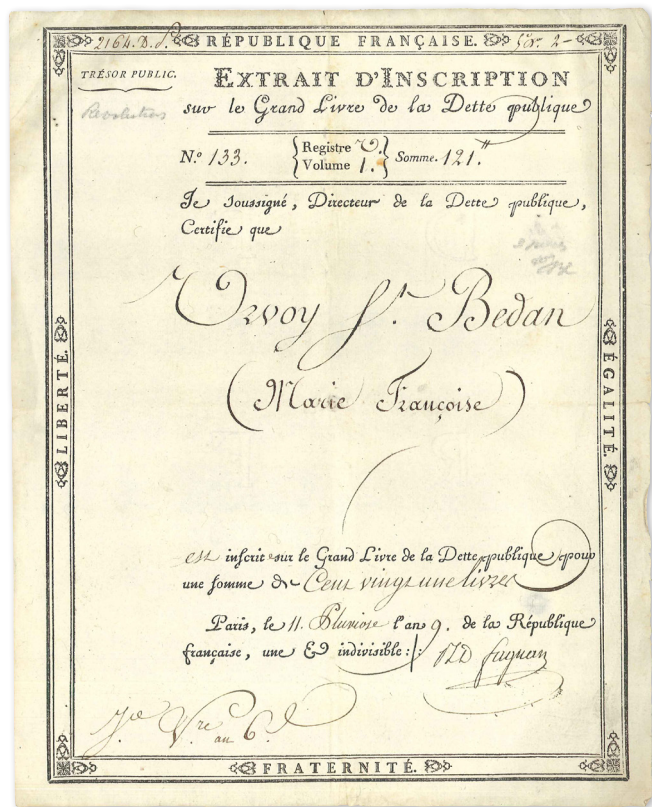 2164. D. P.
RÉPUBLIQUE FRANÇAISE.
For. 2-
TRÉSOR PUBLIC.
EXTRAIT D'INSCRIPTION
Revolution
sur le Grand Livre de la Dette publique
N.º 133. Registre O. Volume 1. Somme. 121.#
Je soussigné, Directeur de la Dette publique,
Certifie que
Orvoy St. Bedan
(Marie Françoise)
LIBERTÉ.
ÉGALITÉ.
est inscrit sur le Grand Livre de la Dette publique pour
une somme de Cent vingt une livres
Paris, le 11. Pluviose l'an 9. de la République
française, une & indivisible:
Jce Vre an 6
FRATERNITÉ.